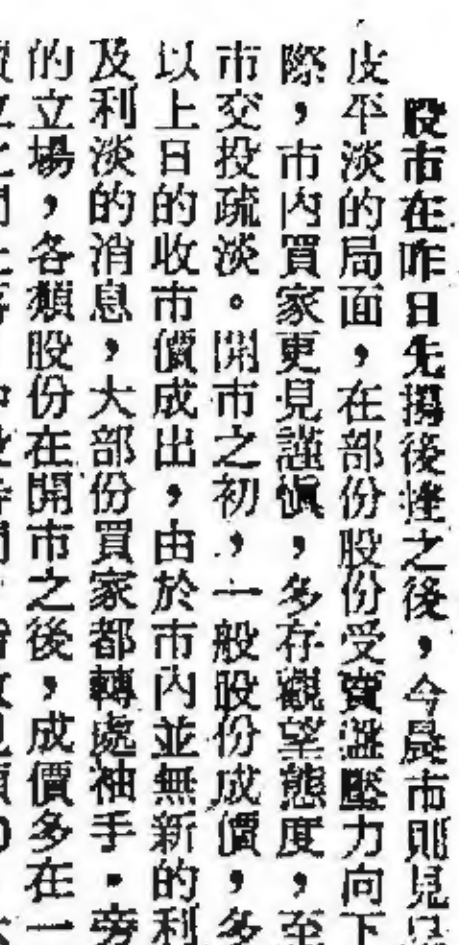 股市在昨日先揚後挫之後，今晨市則見
皮平淡的局面，在部份股份受賣盤壓力向下
際，市內買家更見謹慎，多存觀望態度，至
市交投疏淡。開市之初，一般股份成價，多
以上日的收市價成出，由於市內並無新的利
及利淡的消息，大部份買家都轉處袖手．旁
的立場，各類股份在開市之後，成價多在一